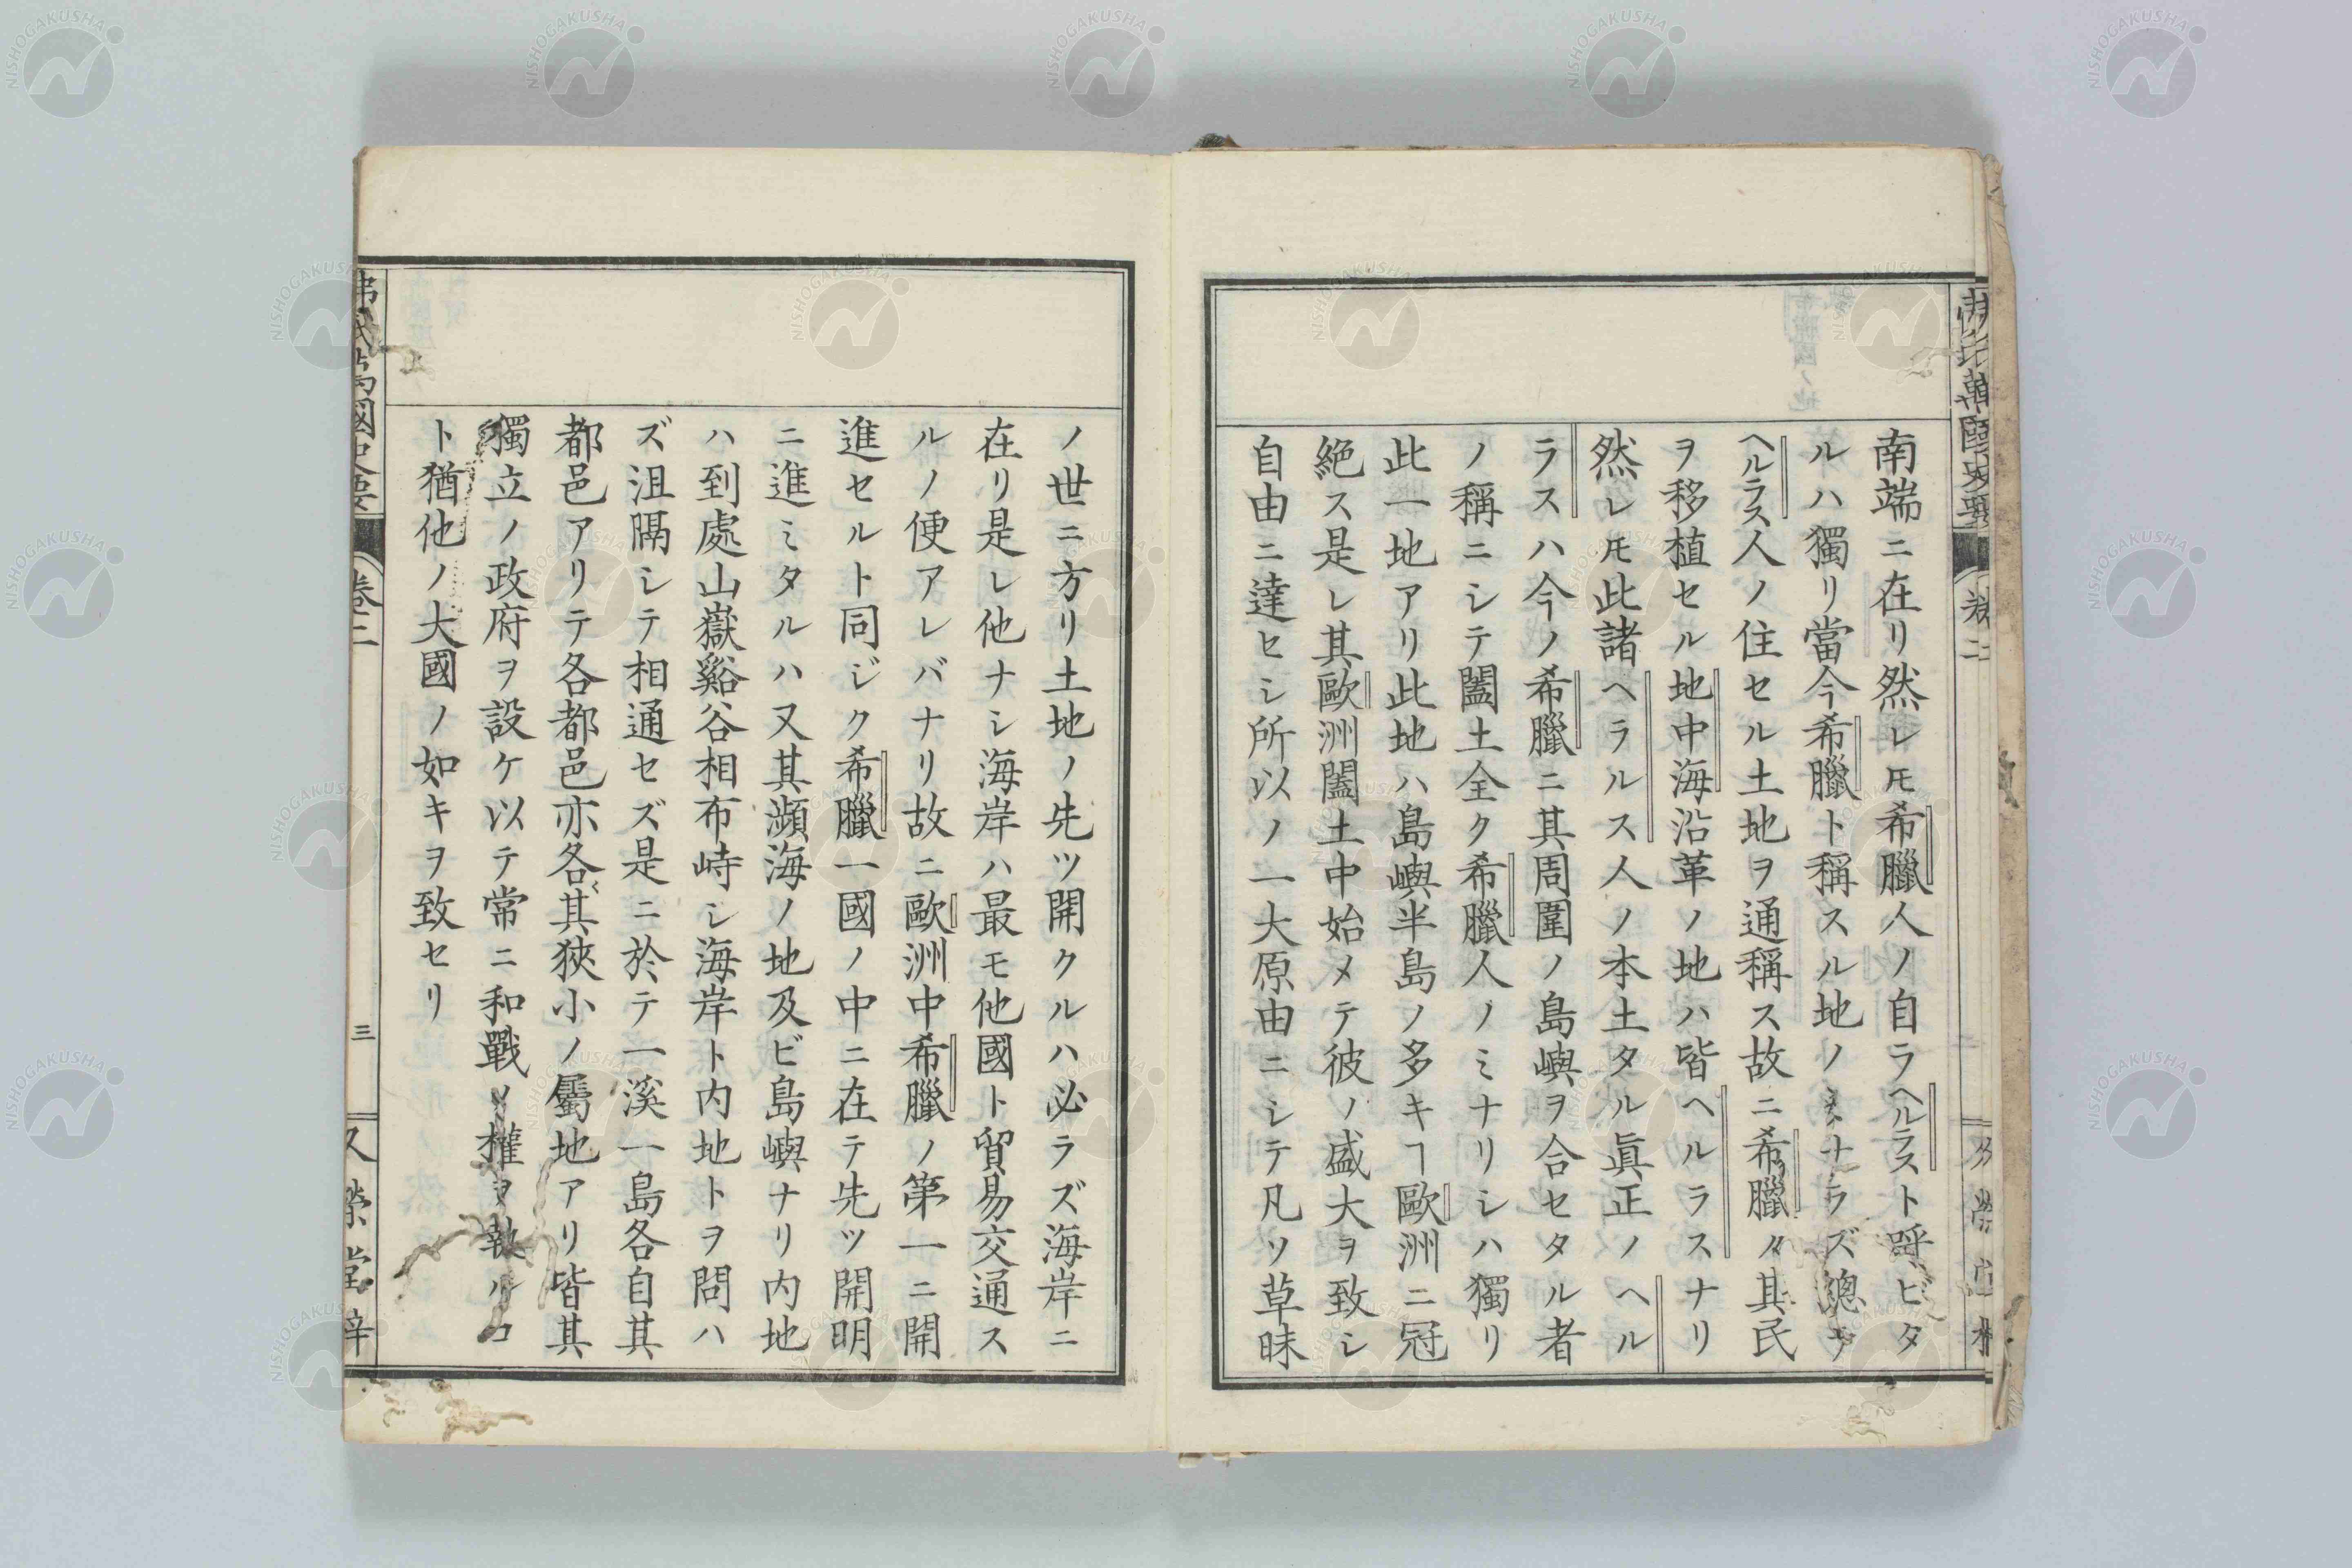 南端ニ在リ然レ𪜈希臘人ノ自ラヘルラスト呼ビタ
ルハ獨リ當今希臘ト稱スル地ノミナラズ總テ
ヘルラス人ノ住セル土地ヲ通稱ス故ニ希臘々其民
ヲ移植セル地中海沿革ノ地ハ皆ヘルラスナリ
然レ𪜈此諸ヘラルス人ノ本土タル眞正ノヘル
ラスハ今ノ希臘ニ其周圍ノ島嶼ヲ合セタル者
ノ稱ニシテ闔土全ク希臘人ノミナリシハ獨リ
此一地アリ此地ハ島嶼半島ノ多キヿ歐洲ニ冠
絶ス是レ其歐洲闔土中始メテ彼ノ盛大ヲ致シ
自由ニ達セシ所以ノ一大原由ニシテ凡ソ草昧
ノ世ニ方リ土地ノ先ツ開クルハ必ラズ海岸ニ
在リ是レ他ナシ海岸ハ最モ他國ト貿易交通ス
ルノ便アレバナリ故ニ歐洲中希臘ノ第一ニ開
進セルト同ジク希臘一國ノ中ニ在テ先ツ開明
ニ進ミタルハ又其瀕海ノ地及ビ島嶼ナリ内地
ハ到處山嶽谿谷相布峙シ海岸ト内地トヲ問ハ
ズ沮隔シテ相通セズ是ニ於テ一溪一島各自其
都邑アリテ各都邑亦各〻其狹小ノ屬地アリ皆其
獨立ノ政府ヲ設ケ以テ常ニ和戰ノ權ヲ執ルコ
ト猶他ノ大國ノ如キヲ致セリ
萬國史要
卷二
三